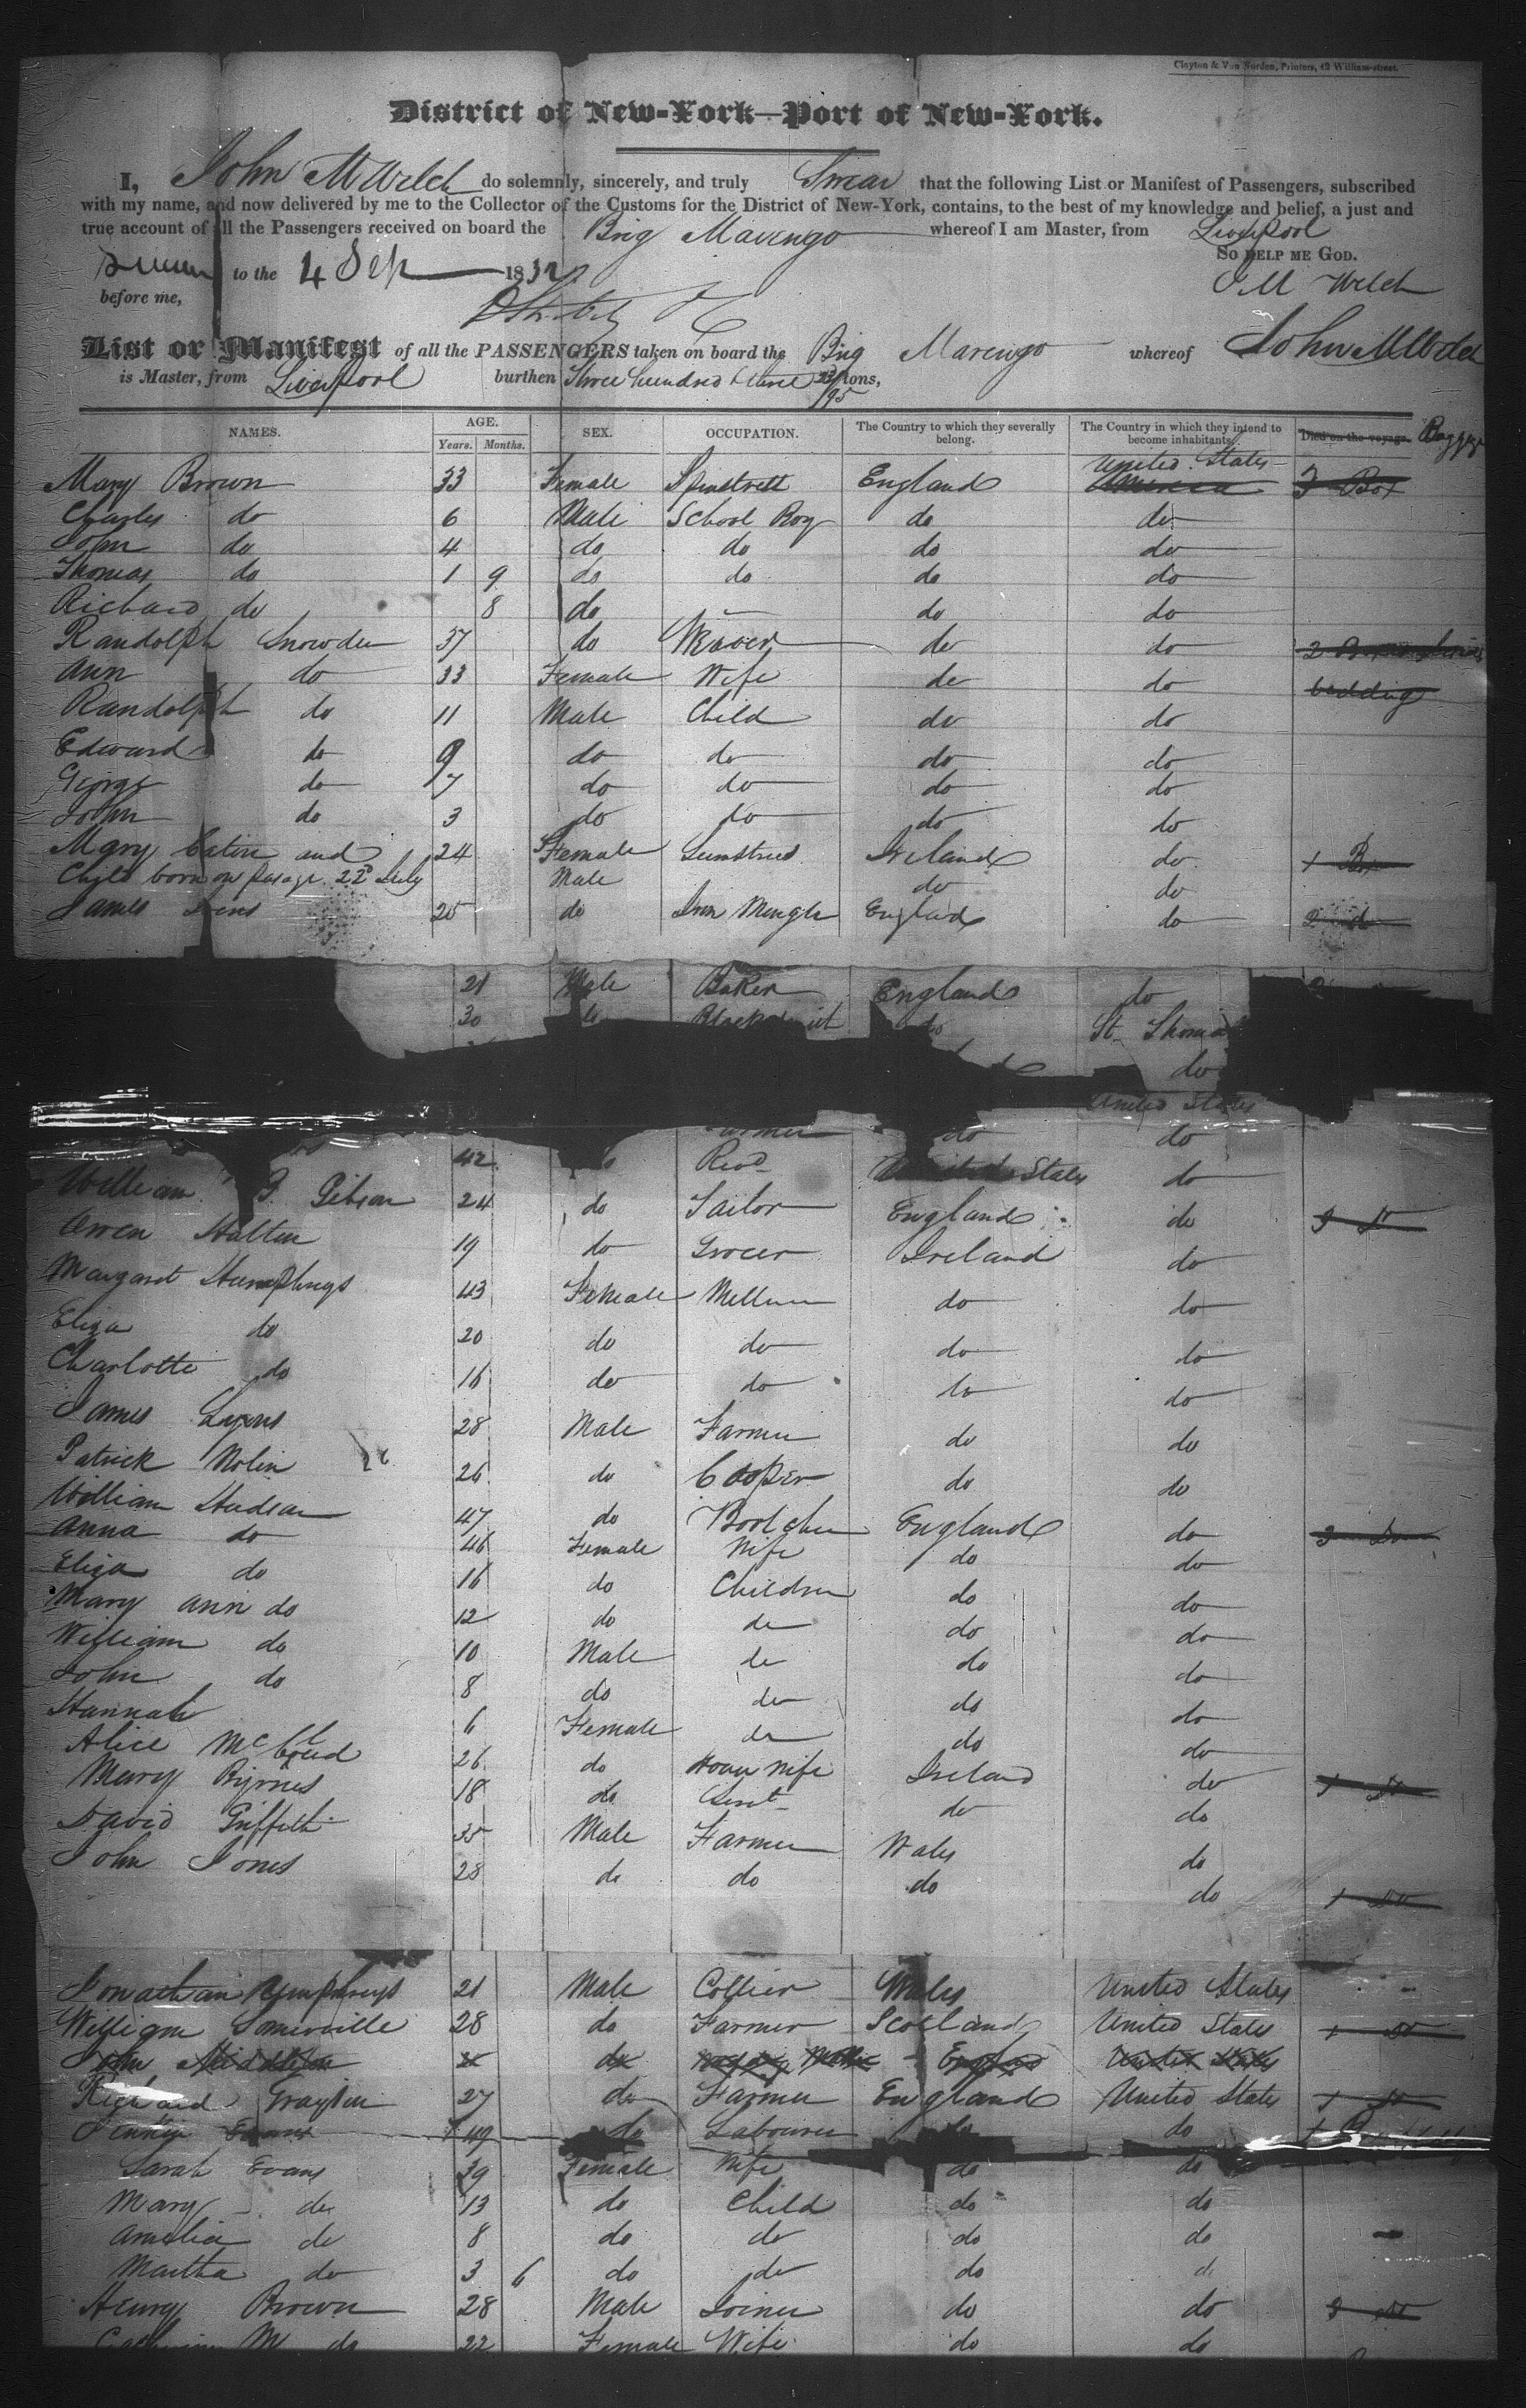 Clayton & Van Norden, Printers, 42 William-street.
District of New-York—Port of New-York.
I, John M Welch do solemnly, sincerely, and truly Swear that the following List or Manifest of Passengers, subscribed
with my name, and now delivered by me to the Collector of the Customs for the District of New-York, contains, to the best of my knowledge and belief, a just and
true account of all the Passengers received on board the Brig Marengo whereof I am Master, from Liverpool
So HELP ME GOD.
Sworn to the 4 Sep 1832
before me,
J M Welch
List or Manifest of all the PASSENGERS taken on board the Brig Marengo whereof John M Welch
is Master, from Liverpool burthen Three hundred & three 23/95 tons,
NAMES. AGE. SEX. OCCUPATION. The Country to which they severally belong. The Country in which they intend to become inhabitants. Died on the voyage. Baggage
Years. Months.
Mary Brown 33 Female England United States 3 Box
Charles do 6 Male School Boy do do
John do 4 do do do do
Thomas do 1 9 do do do do
Richard do 8 do do do
Randolph Snowden 37 do Weaver do do 2
Ann do 33 Female Wife do do bedding
Randolph do 11 Male Child do do
Edward do 9 do do do do
George do 7 do do do do
John do 3 do do do do
Mary and 24 Female Ireland do 1 Box
Child born on pasage 22d July Male do do
James 25 do England do 2 do
21 Male Baker England do
30 do Blacksmith do St. Thomas
do
United States
Farmer do do
42 do United States do
William B. Gibson 24 do Tailor England do 3 do
Owen 19 do Grocer Ireland do
Margaret Humphrys 43 Female do do
Eliza do 20 do do do do
Charlotte do 16 do do do do
James Lyons 28 Male Farmer do do
Patrick Nolin 26 do Cooper do do
William Hudson 47 do England do 3 do
Anna do 46 Female Wife do do
Eliza do 16 do Children do do
Mary Ann do 12 do do do do
William do 10 Male do do do
John do 8 do do do do
Hannah 6 Female do do do
Alice 26 do House Wife Ireland do 1 do
Mary Byrnes 18 do Servt do do
David Griffith 35 Male Farmer Wales do
John Jones 28 do do do do 1 do
Jonathan Humphreys 21 Male Collier Wales United States
William Somerville 28 do Farmer Scotland United States 1 do
John Middleton do England United States
Richard Grayson 27 do Farmer England United States 1 do
Evans 49 do Labourer do do 1
Sarah Evans 39 Female Wife do do
Mary do 13 do Child do do
Amelia do 8 do do do do
Martha do 3 6 do do do do
Henry Brown 28 Male Joiner do do 3 do
Catherine M do 22 Female Wife do do